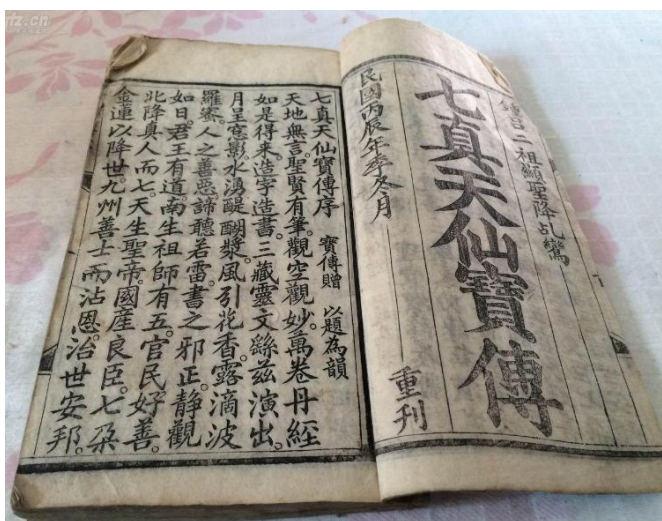 鍾吕二祖顯聖降乩鸞
七真天仙寶傳
重刊
民國丙辰年季冬月
七真天仙寶傳序 寶傳贈 以題為韻
天地無言聖賢有筆。觀空觀妙。萬卷丹經
如是得来。造字造書。三藏靈文繇茲演出。
月呈影。水湧醍醐漿。風引花香。露滴波
羅蜜。人之善惡諦聽若雷。書之邪正。靜觀
如日。君王有道。南生祖師有五。官民好善。
北降真人而七。天生聖帝。國産良臣。七朵
金蓮以降世。九州善士而沾恩。治世安邦。